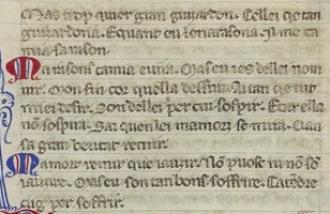 Mas trop quier gran guizardon. Cellei qe tan
guizardona. Equant eu lenarasona. Il me ca
mia sa rason.
Ma rasons camia e vira. Mas eu ies dellei nom
vir. Mon fin cor qella desira. Aitan qe tut
miei desir. Son dellei per cui sospir. Ecar ella
nō sospira. Sai quen lei ma mortz se mira. Can
sa gran beutat remir.
Ma mor remir que iauzir. Nō puose ni nō sō
iauzire. Mas eu son tan bons soffrire. C
cug per soffrir.